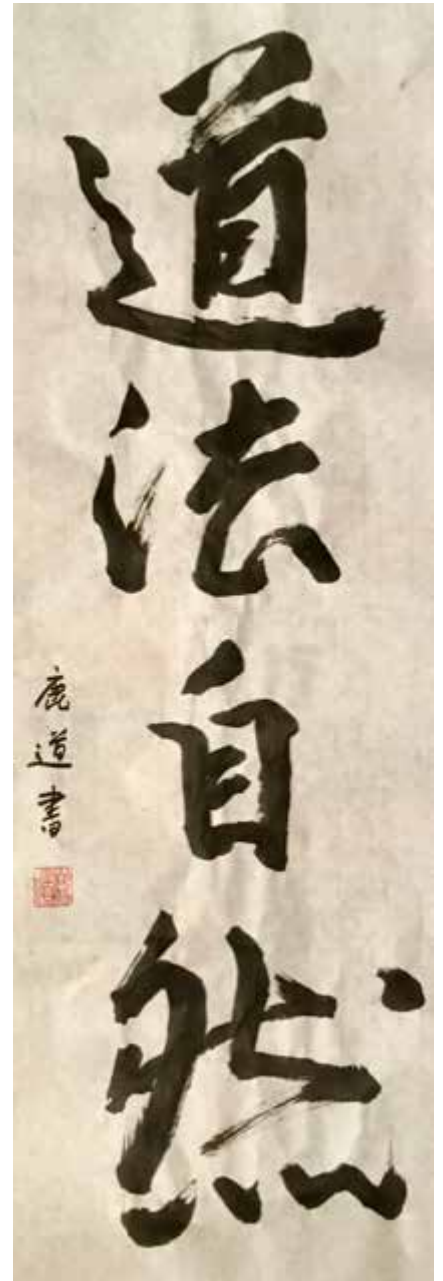 道法自然
鹿道書